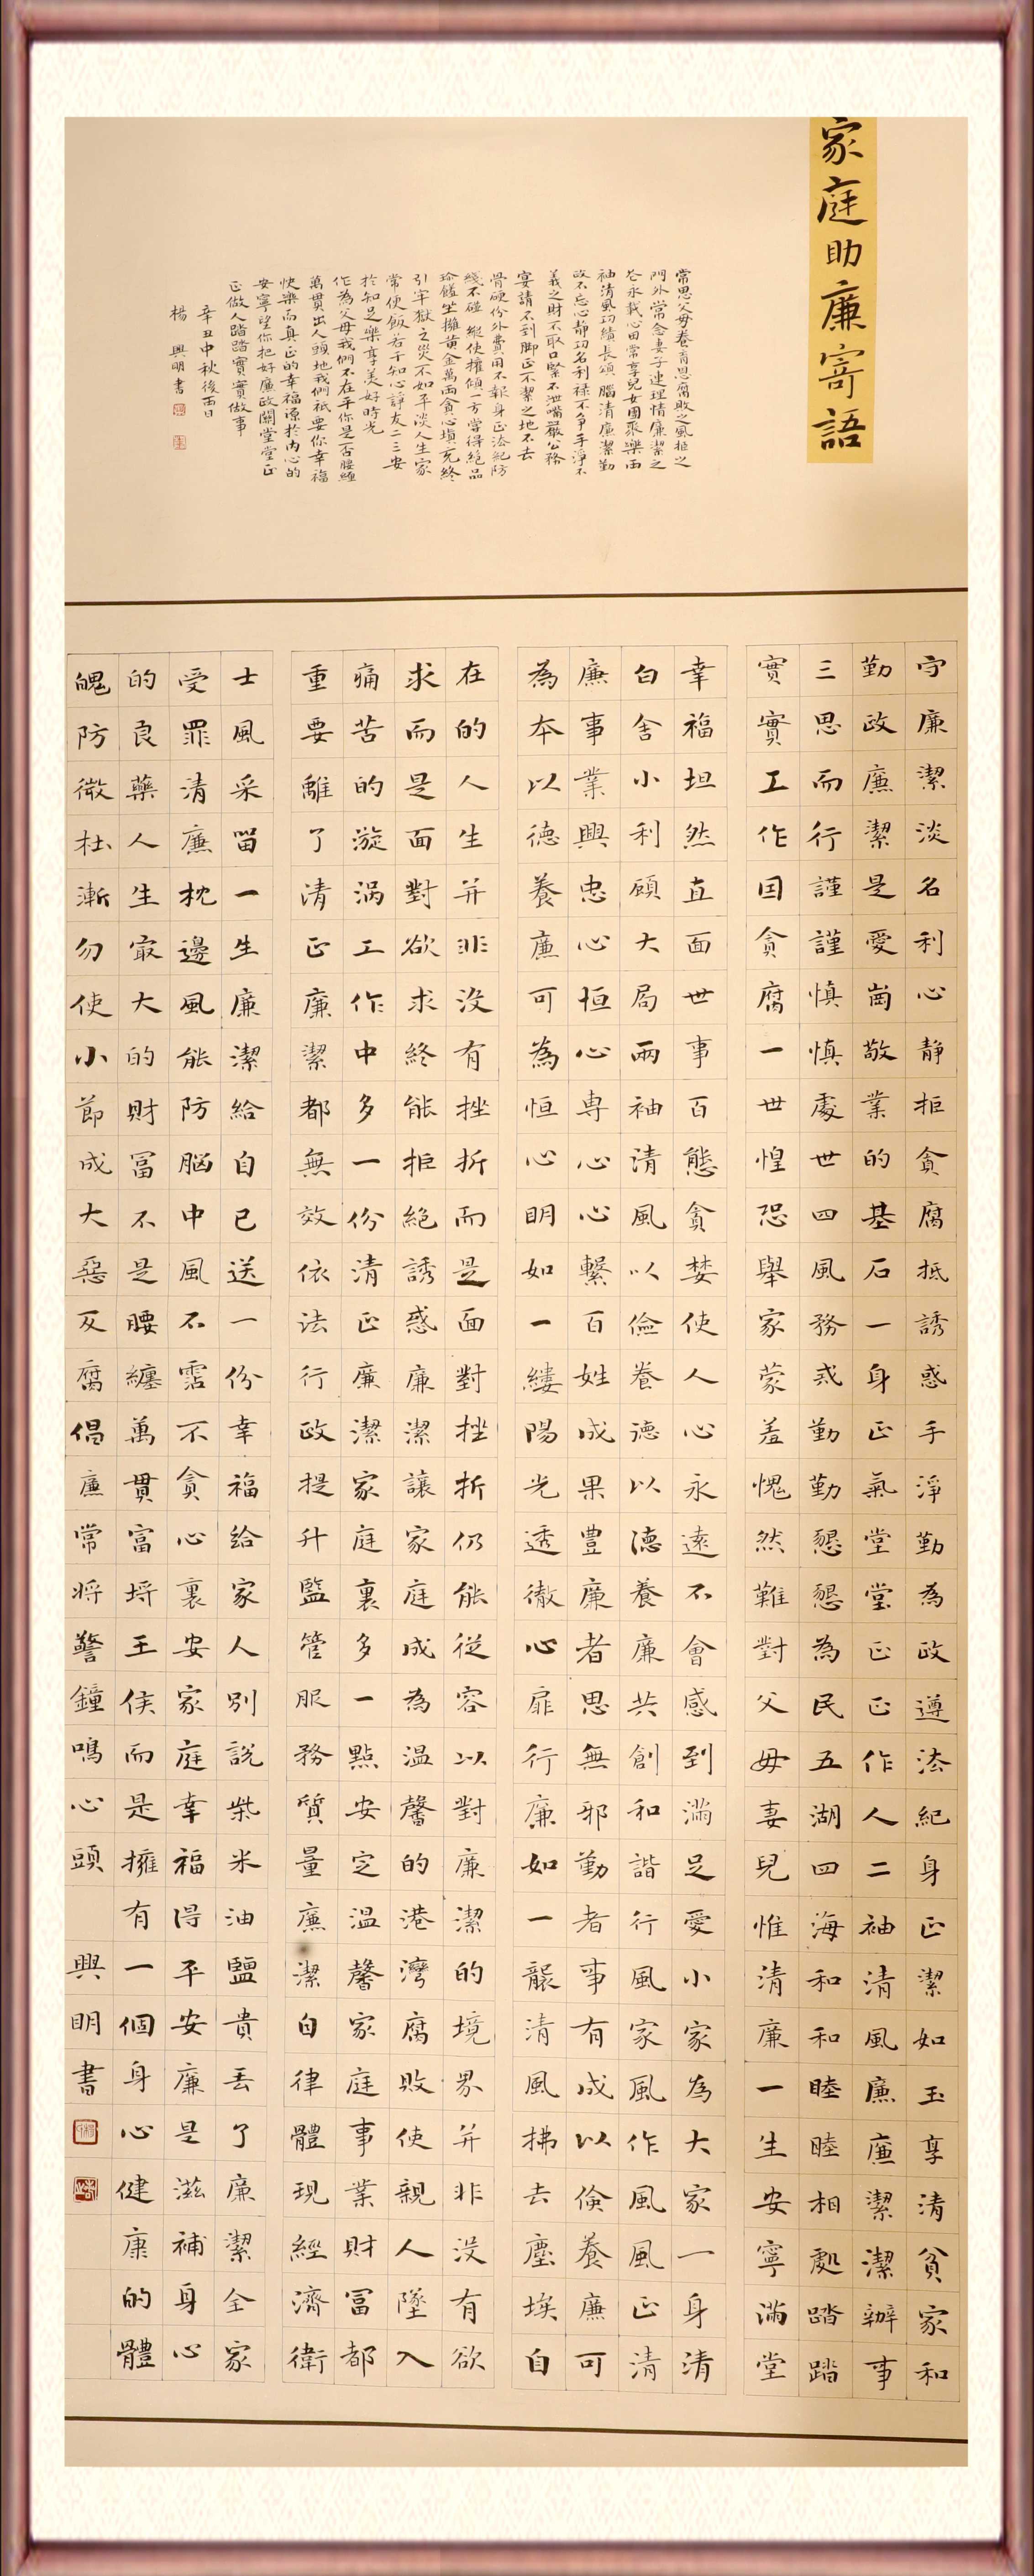 家庭助廉寄語
常思父母養育恩腐敗之風拒之
門外常念妻子連理情廉潔之
心永載心田常享兒女團聚樂兩
袖清風功績長頌腦清廉潔勤
政不忘心靜功名利祿不爭手淨不
義之財不取口緊不泄嘴嚴公務
宴請不到腳正不潔之地不去
骨硬份外費用不報身正法紀防
綫不碰縱使權傾一方嘗得絕品
珍饈坐擁黃金萬兩貪心填充終
引牢獄之災不如平淡人生家
常便飯若干知心諍友二三安
於知足樂享美好時光
作為父母我們不在乎你是否腰纏
萬貫出人頭地我們祇要你幸福
快樂而真正的幸福源於內心的
安寧望你把好廉政關堂堂正
正做人踏踏實實做事
辛丑中秋後西日
楊興明書
守廉潔淡名利心靜拒貪腐抵誘惑手淨勤為政遵法紀身正潔如玉享清貧家和
勤政廉潔是愛崗敬業的基石一身正氣堂堂正正作人二袖清風廉廉潔潔辦事
三思而行謹謹慎慎處世四風務戒勤勤懇懇為民五湖四海和和睦睦相處踏踏
實實工作因貪腐一世惶恐舉家蒙羞愧然難對父母妻兒惟清廉一生安寧滿堂
幸福坦然直面世事百態貪婪使人心永遠不會感到滿足愛小家為大家一身清
白舍小利顧大局兩袖清風以儉養德以德養廉共創和諧行風家風作風風正清
廉事業興忠心恒心專心心繫百姓成果豐廉者思無邪勤者事有成以儉養廉可
為本以德養廉可為恒心明如一縷陽光透徹心扉行廉如一襲清風拂去塵埃自
在的人生并非沒有挫折而是面對挫折仍能從容以對廉潔的境界并非沒有欲
求而是面對欲求終能拒絕誘惑廉潔讓家庭成為溫馨的港灣腐敗使親人墜入
痛苦的漩渦工作中多一份清正廉潔家庭裏多一點安定溫馨家庭事業財富都
重要離了清正廉潔都無效依法行政提升監管服務質量廉潔自律體現經濟衛
士風采留一生廉潔給自己送一份幸福給家人別說柴米油鹽貴丟了廉潔全家
受罪清廉枕邊風能防腦中風不霑不貪心裏安家庭幸福得平安廉是滋補身心
的良藥人生最大的財富不是腰纏萬貫富埒王侯而是擁有一個身心健康的體
魄防微杜漸勿使小節成大惡反腐倡廉常將警鐘鳴心頭
興明書